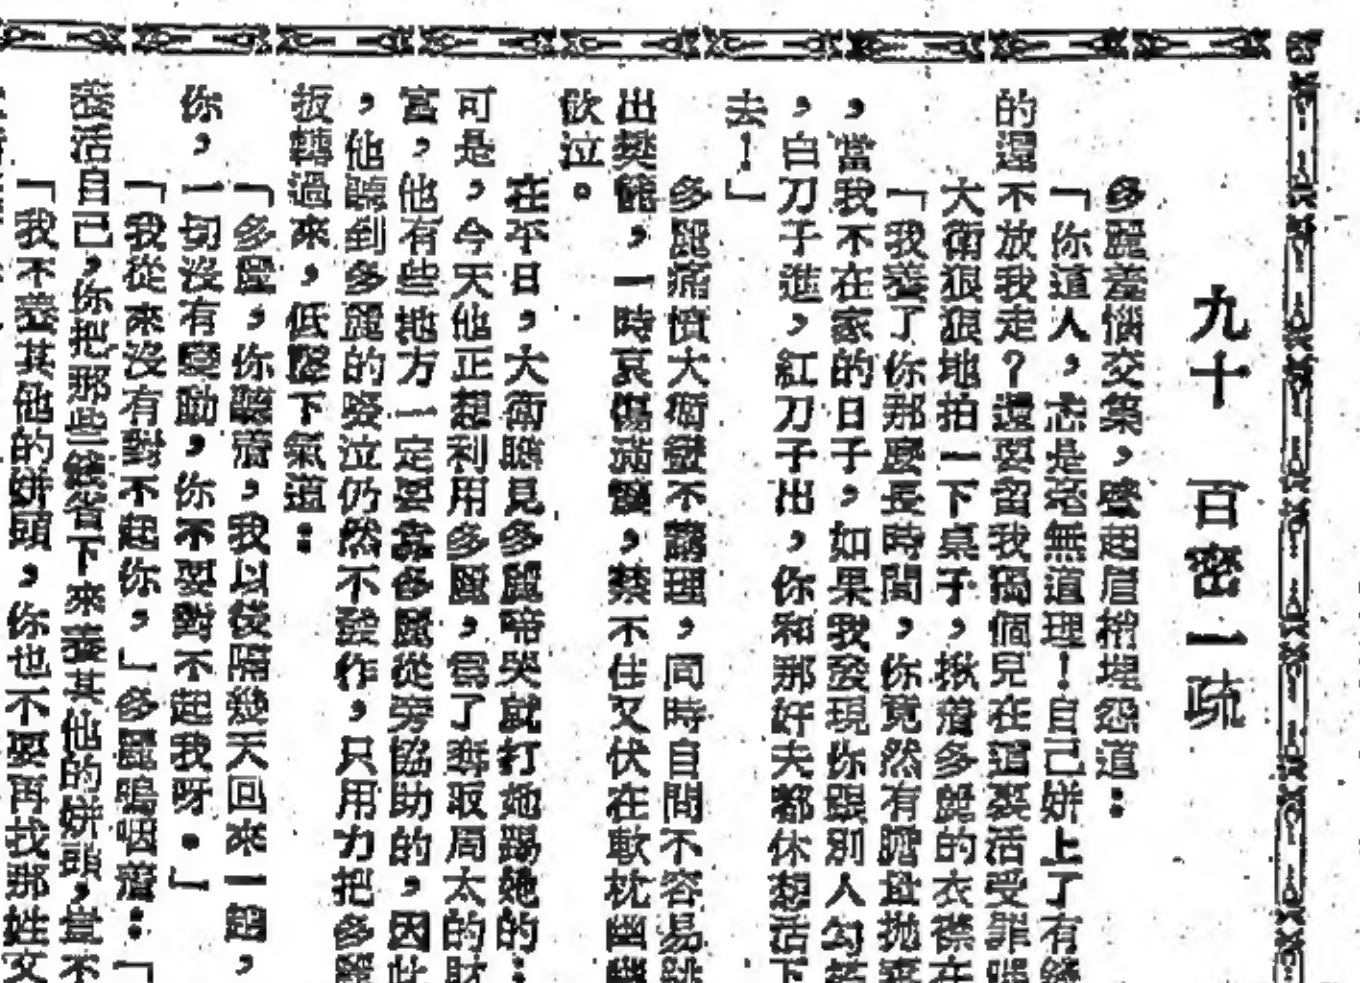 九十　百密一疏
多麗羞惱交集，蹙起眉梢埋怨道：
「你道人，忒是毫無道理！自己姘上了有
的還不放我走？還要留我獨個兒在這裏活受罪
大衛狠狠地拍一下桌子，揪着多麗的衣襟在
「我養了你那麼長時間，你竟然有膽量拋棄
，當我不在家的日子，如果我發現你跟別人勾
，白刀子進，紅刀子出，你和那奸夫都休想活下
去！」
多麗痛憤大衛蠻不講理，同時自問不容易跳
出樊籠，一時哀傷滿懷，禁不住又伏在軟枕幽幽
飲泣。
在平日，大衛瞧見多麗啼哭就打她踢她的；
可是，今天他正想利用多麗，爲了奪取周太的財
富，他有些地方一定要靠多麗從旁協助的，因此
，他聽到多麗的啜泣仍然不發作，只用力把多麗
扳轉過來，低聲下氣道：
「多麗，你聽着，我以後隔幾天回來一趟，
你，一切沒有變動，你不要對不起我呀。」
「我從來沒有對不起你，」多麗嗚咽着：「
養活自己，你把那些錢省下來養其他的姘頭，豈不
「我不養其他的姘頭，你也不要再找那姓文